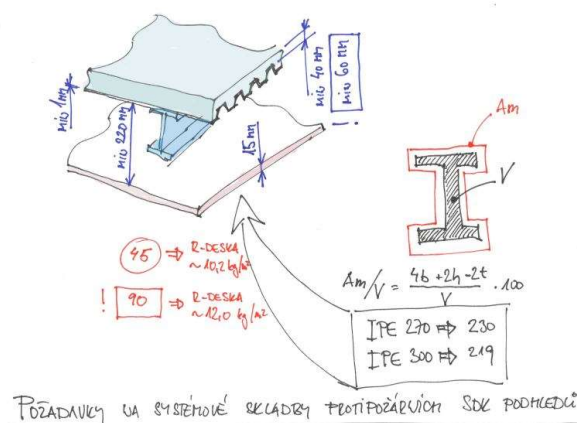 min 1mm
min 220 mm
min 40 mm
min 60 mm
!
15 mm
Am
V
45 ⇒ R-DESKA
~10,2 kg/m²
! 90 ⇒ R-DESKA
~12,0 kg/m²
Am/V = 4b +2h-2t / V · 100
IPE 270 ⇒ 230
IPE 300 ⇒ 219
POŽADAVKY NA SYSTÉMOVÉ SKLADBY PROTIPOŽÁRNÍCH SDK PODHLEDŮ